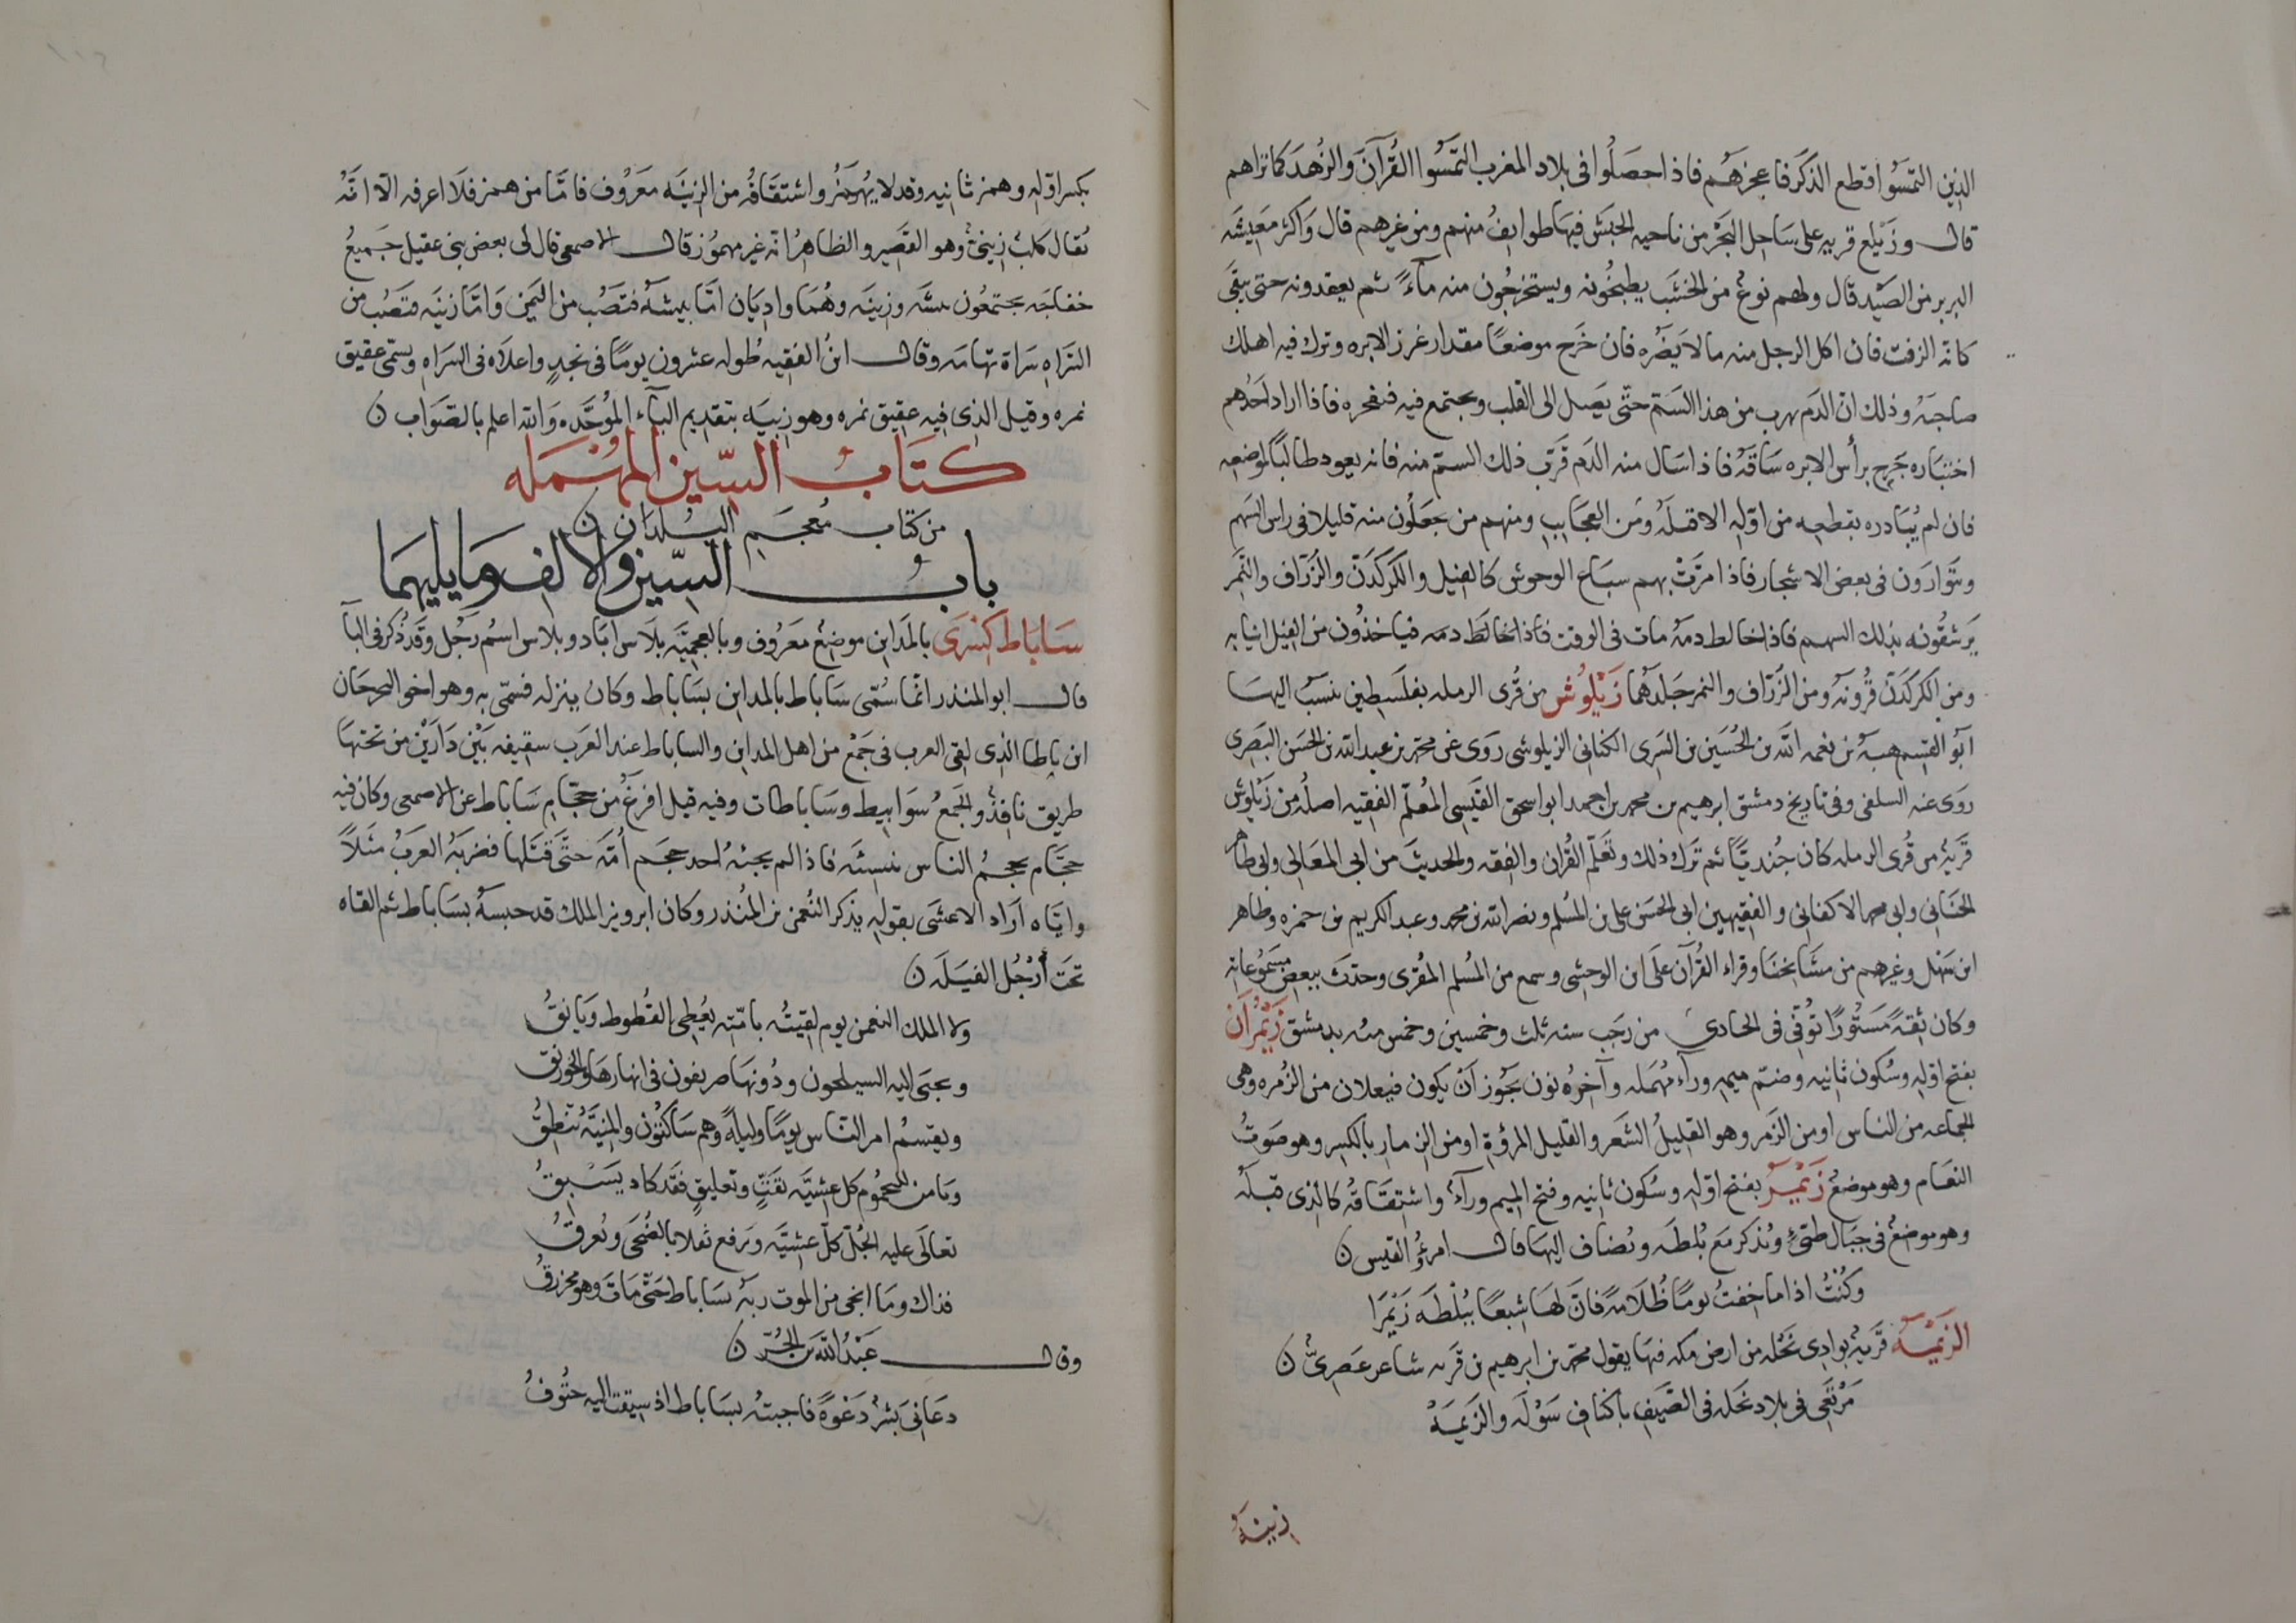 الذين التمسوا قطع الذكر فاعجزهم فاذا حصلوا فى بلاد المغرب التمسوا القرآن والزهد كما تراهم
قال وزيلع قريه على ساحل البحر من ناحيه الحبش فيها طوايف منهم ومن غيرهم قال واكثر معيشه
البربر من الصيد قال ولهم نوع من الخشب يطبخونه ويستخرجون منه مآء ثم يعقدونه حتى يبقى
كانه الزفت فان اكل الرجل منه ما لا يضره فان خرج موضعا مقدار غرز الابره وترك فيه اهلك
صاحبه وذلك ان الدم يهرب من هذا السم حتى يصل الى القلب ويجتمع فيه فيفجره فاذا اراد احدهم
اختباره جرح برأس الابره ساقه فاذا سال منه الدم قرب ذلك السم منه فانه يعود طالبا لموضعه
فان لم يبادره بقطعه من اوله الا قتله ومن العجايب ومنهم من يجعلون منه قليلا فى راس السهم
ويتوارون فى بعض الاشجار فاذا مرت بهم سباع الوحوش كالفيل والكركدن والزراف والنمر
يرشقونه بذلك السهم فاذا خالط دمه مات فى الوقت فاذا خالط دمه فياخذون من الفيل انيابه
ومن الكركدن قرونه ومن الزراف والنمر جلدهما زيلوش من قرى الرمله بفلسطين ينسب اليها
ابو القسم هبه بن نعمه الله بن الحسين بن السرى الكنانى الزيلوشى روى عن محمد بن عبد الله بن الحسن البصرى
روى عنه السلفى وفى تاريخ دمشق ابرهيم بن محمد بن احمد ابو اسحق القيسى المعلم الفقيه اصله من زيلوش
قرية من قرى الرمله كان جنديا ثم ترك ذلك وتعلم القران والفقه والحديث من ابى المعالى وابى طاهر
الحنانى وابى محمد الاكفانى والفقيهين ابى الحسن على بن المسلم ونصر الله بن محمد وعبد الكريم بن حمزه وطاهر
ابن سهل وغيرهم من مشايخنا وقراء القرآن على ابن الوحشى وسمع من المسلم المقرى وحدث ببعض مسموعاته
وكان ثقة مستورا توفى فى الحادى من رجب سنه ثلث وخمسين وخمس مئه بدمشق زيمران
بفتح اوله وسكون ثانيه وضم ميمه ورآء مهمله وآخره نون يجوز ان يكون فيعلان من الزمره وهى
الجماعه من الناس او من الزمر وهو القليل الشعر والقليل المروة او من الزمار بالكسر وهو صوت
النعام وهو موضع زيمر بفتح اوله وسكون ثانيه وفتح الميم ورآء واشتقاقه كالذى قبله
وهو موضع فى جبال طئ ويذكر مع بلطه ويضاف اليها قال امرؤ القيس ن
وكنت اذا ما خفت يوما ظلامة فان لها شعبا ببلطه زيمرا
الزيمه قرية بوادى نخله من ارض مكه فيها يقول محمد بن ابرهيم بن قربه شاعر عصرى ن
مرتعى فى بلاد نخله فى الصيف باكناف سوله والزيمه
زينه
بكسر اوله وهمز ثانيه وقد لا يهمز واشتقاقه من الزينه معروف فاما من همز فلا اعرفه الا انه
يقال كلب زينى وهو القصير والظاهر انه غير مهموز قال الاصمعى قال لى بعض بنى عقيل جميع
خفاجه يجتمعون ببيشه وزينه وهما واديان اما بيشه فتصب من اليمن واما زينه فتصب من
السراه سراة تهامه وقال ابن الفقيه طوله عشرون يوما فى نجد واعلاه فى السراه ويسمى عقيق
نمره وقيل الذى فيه عقيق نمره وهو زبيه بتقديم البآء الموحده والله اعلم بالصواب ن
كتاب السين المهمله
من كتاب معجم البلدان ن
باب السين والالف وما يليهما
ساباط كسرى بالمداين موضع معروف وبالعجميه بلاس اباد وبلاس اسم رجل وقد ذكر فى البآ
قال ابو المنذر انما سمى ساباط بالمداين بساباط وكان ينزله فسمى به وهو اخو النخيرجان
ابن باطا الذى لقى العرب فى جمع من اهل المداين والساباط عند العرب سقيفه بين دارين من تحتها
طريق نافذ والجمع سوابيط وساباطات وفيه قيل افرغ من حجام ساباط عن الاصمعى وكان فيه
حجام يحجم الناس بنسئه فاذا لم يجئه احد حجم امه حتى قتلها فضربه العرب مثلا
واياه اراد الاعشى بقوله يذكر النعمن بن المنذر وكان ابرويز الملك قد حبسه بساباط ثم القاه
تحت ارجل الفيله ن
ولا الملك النعمن يوم لقيته بامته يعطى القطوط ويانق
ويجبى اليه السيلحون ودونها صريفون فى انهارها والخورنق
ويقسم امر الناس يوما وليلة وهم ساكتون والمنية تنطق
ويامر لليحموم كل عشيه بقت وتعليق فقد كاد يسبق
تعالى عليه الجل كل عشيه وترفع ثقلا بالضحى وتعرق
فذاك وما انجى من الموت ربه بساباط حتى مات وهو محزرق
وقال عبد الله بن الحر ن
دعانى بشر دعوة فاجبته بساباط اذ سيقت اليه حتوف